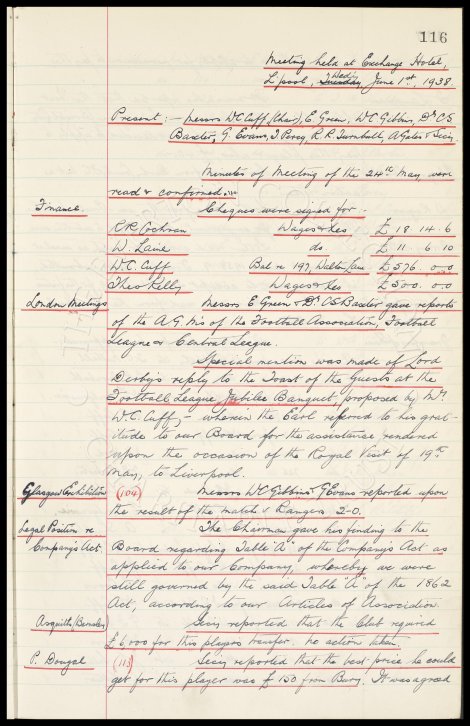 116
Meeting held at Exchange Hotel,
L'pool, Tuesday Wed. June 1st, 1938.
Present :- Messrs W.C. Cuff, (Chair), E. Green, W.C. Gibbins, Dr C.S.
Baxter, G. Evans, J. Percy, R.R. Turnbull, A. Gates & Secy
Minutes of Meeting of the 24th May were
read & confirmed.
Finance. Cheques were signed for -
R.R. Cochran Wages & Fees £ 18 14. 6
W. Laine do £ 11. 6. 10
W.C. Cuff Bal re 197, Walton Lane £576. 0. 0
Theo Kelly Wages &c £500. 0. 0
London Meetings Messrs E Green & Dr C.S Baxter gave reports
of the A.G.M's of the Football Association, Football
League & Central League.
Special mention was made of Lord
Derby's reply to the Toast of the Guests at the
Football League Jubilee Banquet, proposed by Mr
W.C. Cuff, - wherein the Earl referred to his grat-
itude to our Board for the assistance rendered
upon the occasion of the Royal Visit of 19th
May, to Liverpool.
Glasgow Exhibition (104) Messrs W.C Gibbins & G Evans reported upon
the result of the match v Rangers 2-0.
Legal Position re The Chairman gave his finding to the
Company's Act. Board regarding Table "A" of the Company's Act as
applied to our Company, whereby we were
still governed by the said Table "A" of the 1862
Act, according to our Articles of Association.
Asquith, (Barnsley) Secy reported that the Club required
£6,000 for this players transfer. no action taken.
P. Dougal (113) Secy reported that the best price he could
get for this player was £150 from Bury. It was agreed